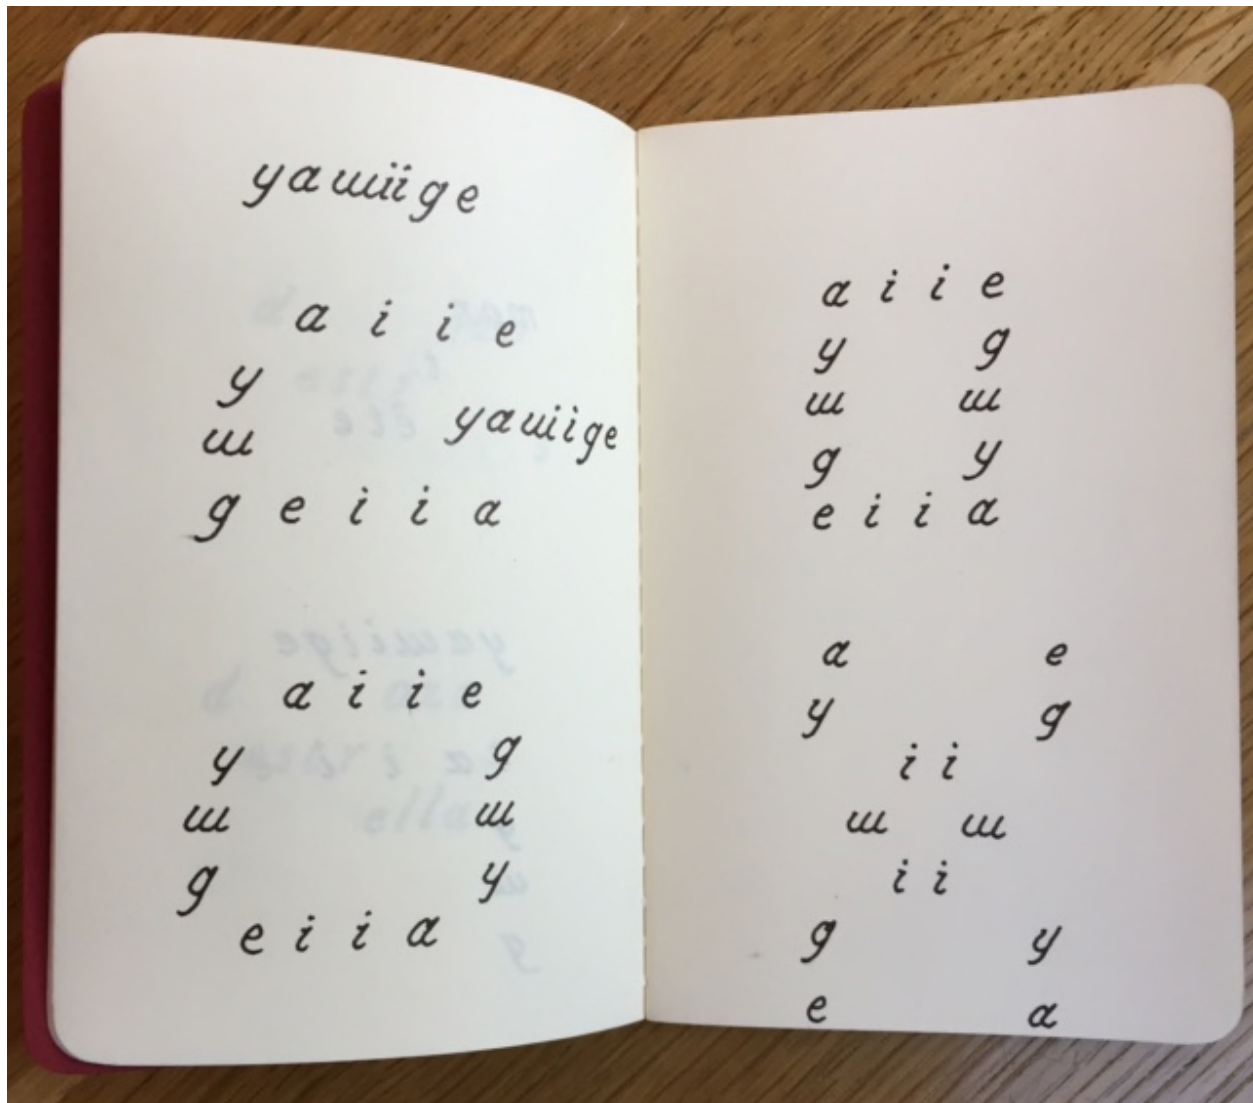 yaшiige
a i i e
y
ш yaшiige
g e i i a
a i i e
y g
ш ш
g y
e i i a
a i i e
y g
ш ш
g y
e i i a
a e
y g
i i
ш ш
i i
g y
e a